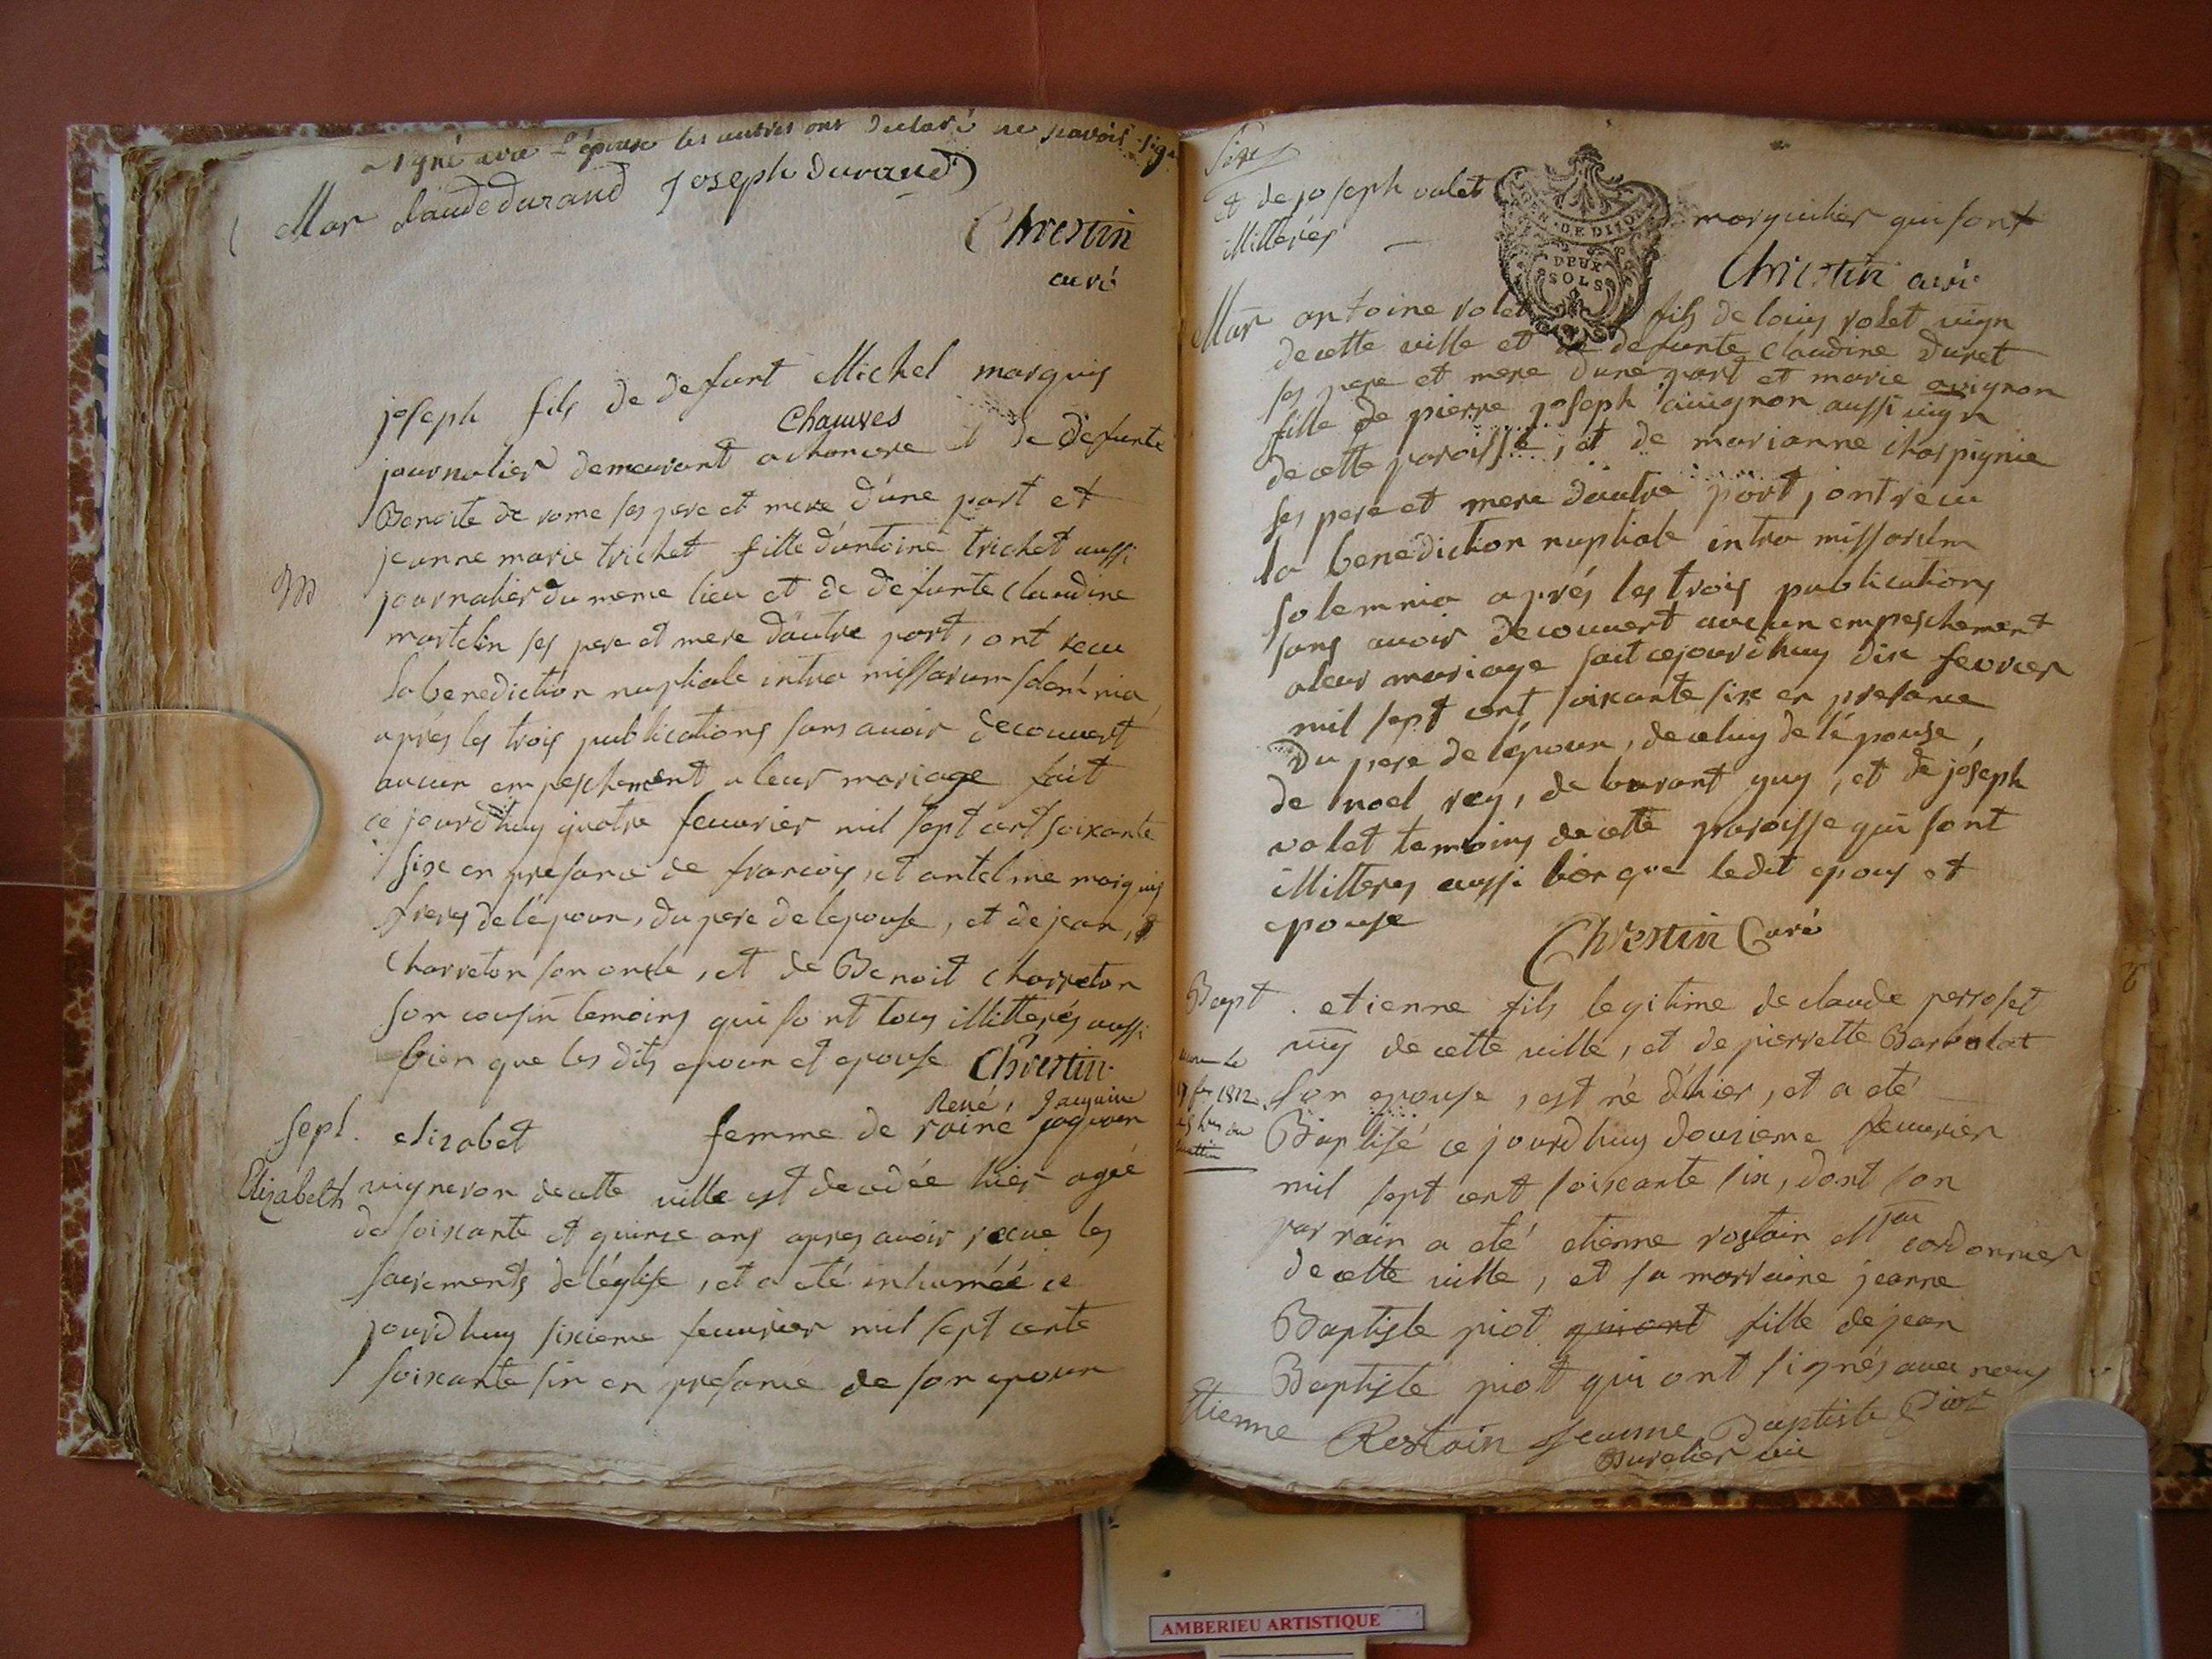 a signé avec l'épouse les autres ont declaré ne scavoir sig
Mar Claude durand Joseph durand
Chrestin
curé
joseph fils de defunt Michel marquis
chauves
journalier demeurant a et de defunte
Benoite de rome ses pere et mere d'une part et
jeanne marie trichet fille d'antoine trichet aussi
M
journalier du meme lieu et de defunte claudine
martelin ses pere et mere d'autre part, ont recu
la benediction nuptiale intra missarum solemnia
aprés les trois publications sans avoir decouvert
aucun empeschement a leur mariage fait
ce jourdhuy quatre feuvrier mil sept cent soixante
six en presance de francois, et antelme marquis
freres de l'epoux, du pere de lepouse, et de jean,
charreton son oncle, et de Benoit charreton
son cousin temoins qui sont tous illitterés aussi
bien que les dits epoux et epouse Chrestin
René, Jacquine
Sept. elizabet femme de raine
Elizabeth vigneron de cette ville est decedée hier agée
de soixante et quinze ans apres avoir recue les
sacrements de l'église, et a été inhumée ce
jourdhuy sixieme feuvrier mil sept cente
soixante six en presance de son epoux
et de joseph valet marguilier qui sont
illitterés
GEN. DE DIJON
DEUX
SOLS
Chrestin curé
Mar antoine volet fils de louis volet vign
de cette ville et de defunte claudine duret
ses pere et mere dune part et marie avignon
fille de pierre joseph avignon aussi vign
de cette paroisse, et de marianne charpignie
ses pere et mere dautre part, ont recu
la benediction nuptiale intra missarum
solemnia aprés les trois publications
sans avoir decouvert aucun empeschement
a leur mariage fait cejourdhuy dix fevrier
mil sept cent soixante six en presance
du pere de l'époux, de celuy de l'épouse,
de noel rey, de laurant guy, et de joseph
valet temoins de cette paroisse qui sont
illitteres aussi bien que ledit epoux et
epouse
Chrestin Curé
Bapt. etienne fils legitime de claude perroset
vig de cette ville, et de pierrette Barbolat
son epouse, est né d'hier, et a eté
1812
Baptisé ce jourdhuy douzieme feuvrier
mil sept cent soixante six, dont son
parrain a eté etienne rostain cordonnier
de cette ville, et sa marraine jeanne
Baptiste piot qui ont fille de jean
Baptiste piot qui ont signés avec nous
Etienne Rostain Jeanne Baptiste Piot